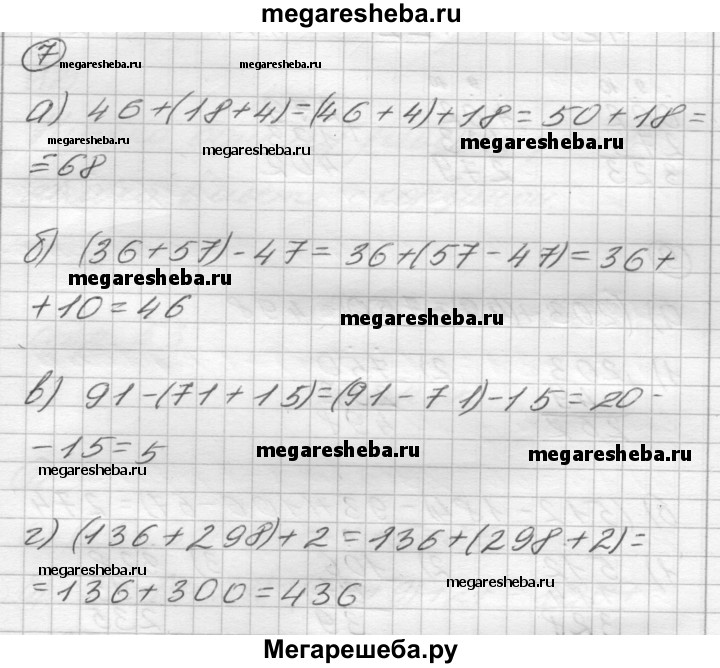 megaresheba.ru
7
megaresheba.ru megaresheba.ru
а) 46+(18+4)=(46+4)+18=50+18=
megaresheba.ru megaresheba.ru megaresheba.ru
=68
б) (36+57)-47=36+(57-47)=36+
megaresheba.ru
+10=46
megaresheba.ru
в) 91-(71+15)=(91-71)-15=20-
-15=5
megaresheba.ru megaresheba.ru megaresheba.ru
г) (136+298)+2=136+(298+2)=
megaresheba.ru megaresheba.ru
=136+300=436
Мегарешеба.ру